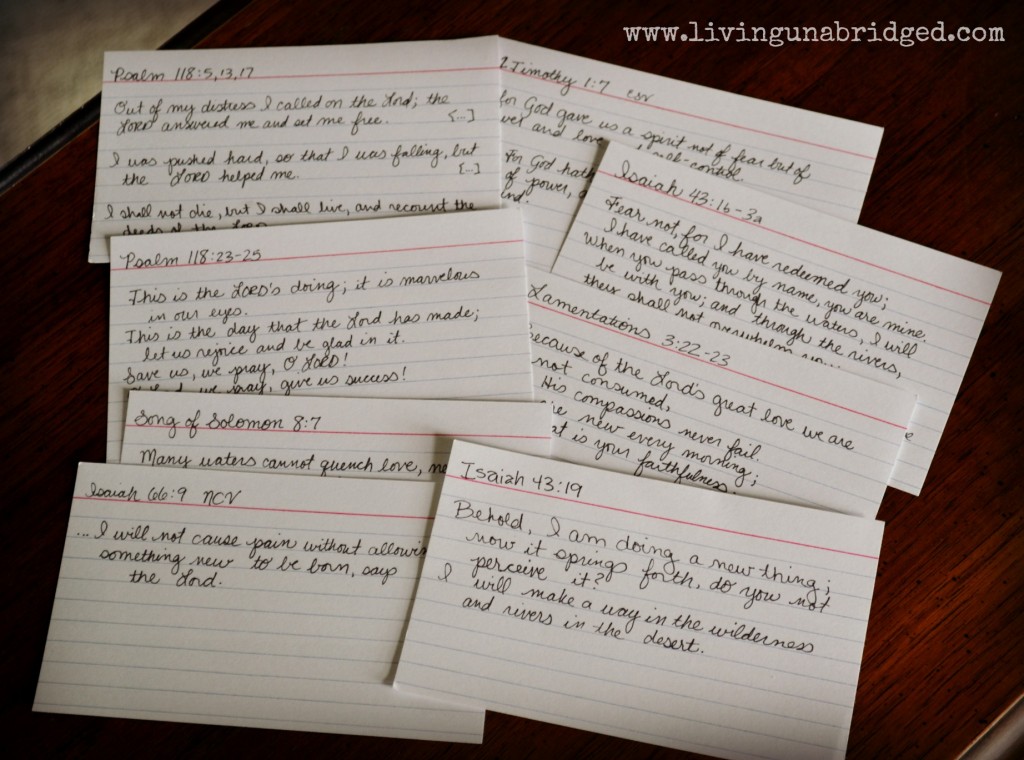 www.livingunabridged.com
Psalm 118:5,13,17
Out of my distress I called on the Lord; the
LORD answered me and set me free. [...]
I was pushed hard, so that I was falling, but
the LORD helped me. [...]
I shall not die, but I shall live, and recount the
deeds of the
Timothy 1:7 esv
for God gave us a spirit not of fear but of
and love self-control.
For God hath
of power,
Isaiah 43:1b-3a
Fear not, for I have redeemed you;
I have called you by name, you are mine.
When you pass through the waters, I will
be with you; and through the rivers,
they shall not overwhelm
Psalm 118:23-25
This is the LORD's doing; it is marvelous
in our eyes.
This is the day that the Lord has made;
let us rejoice and be glad in it.
Save us, we pray, O LORD!
we pray, give us success!
Lamentations 3:22-23
Because of the Lord's great love we are
not consumed,
His compassions never fail.
new every morning;
is your faithfulness.
Song of Solomon 8:7
Many waters cannot quench love,
Isaiah 66:9 NCV
... I will not cause pain without
something new to be born, says
the Lord.
Isaiah 43:19
Behold, I am doing a new thing;
now it springs forth, do you not
perceive it?
I will make a way in the wilderness
and rivers in the desert.